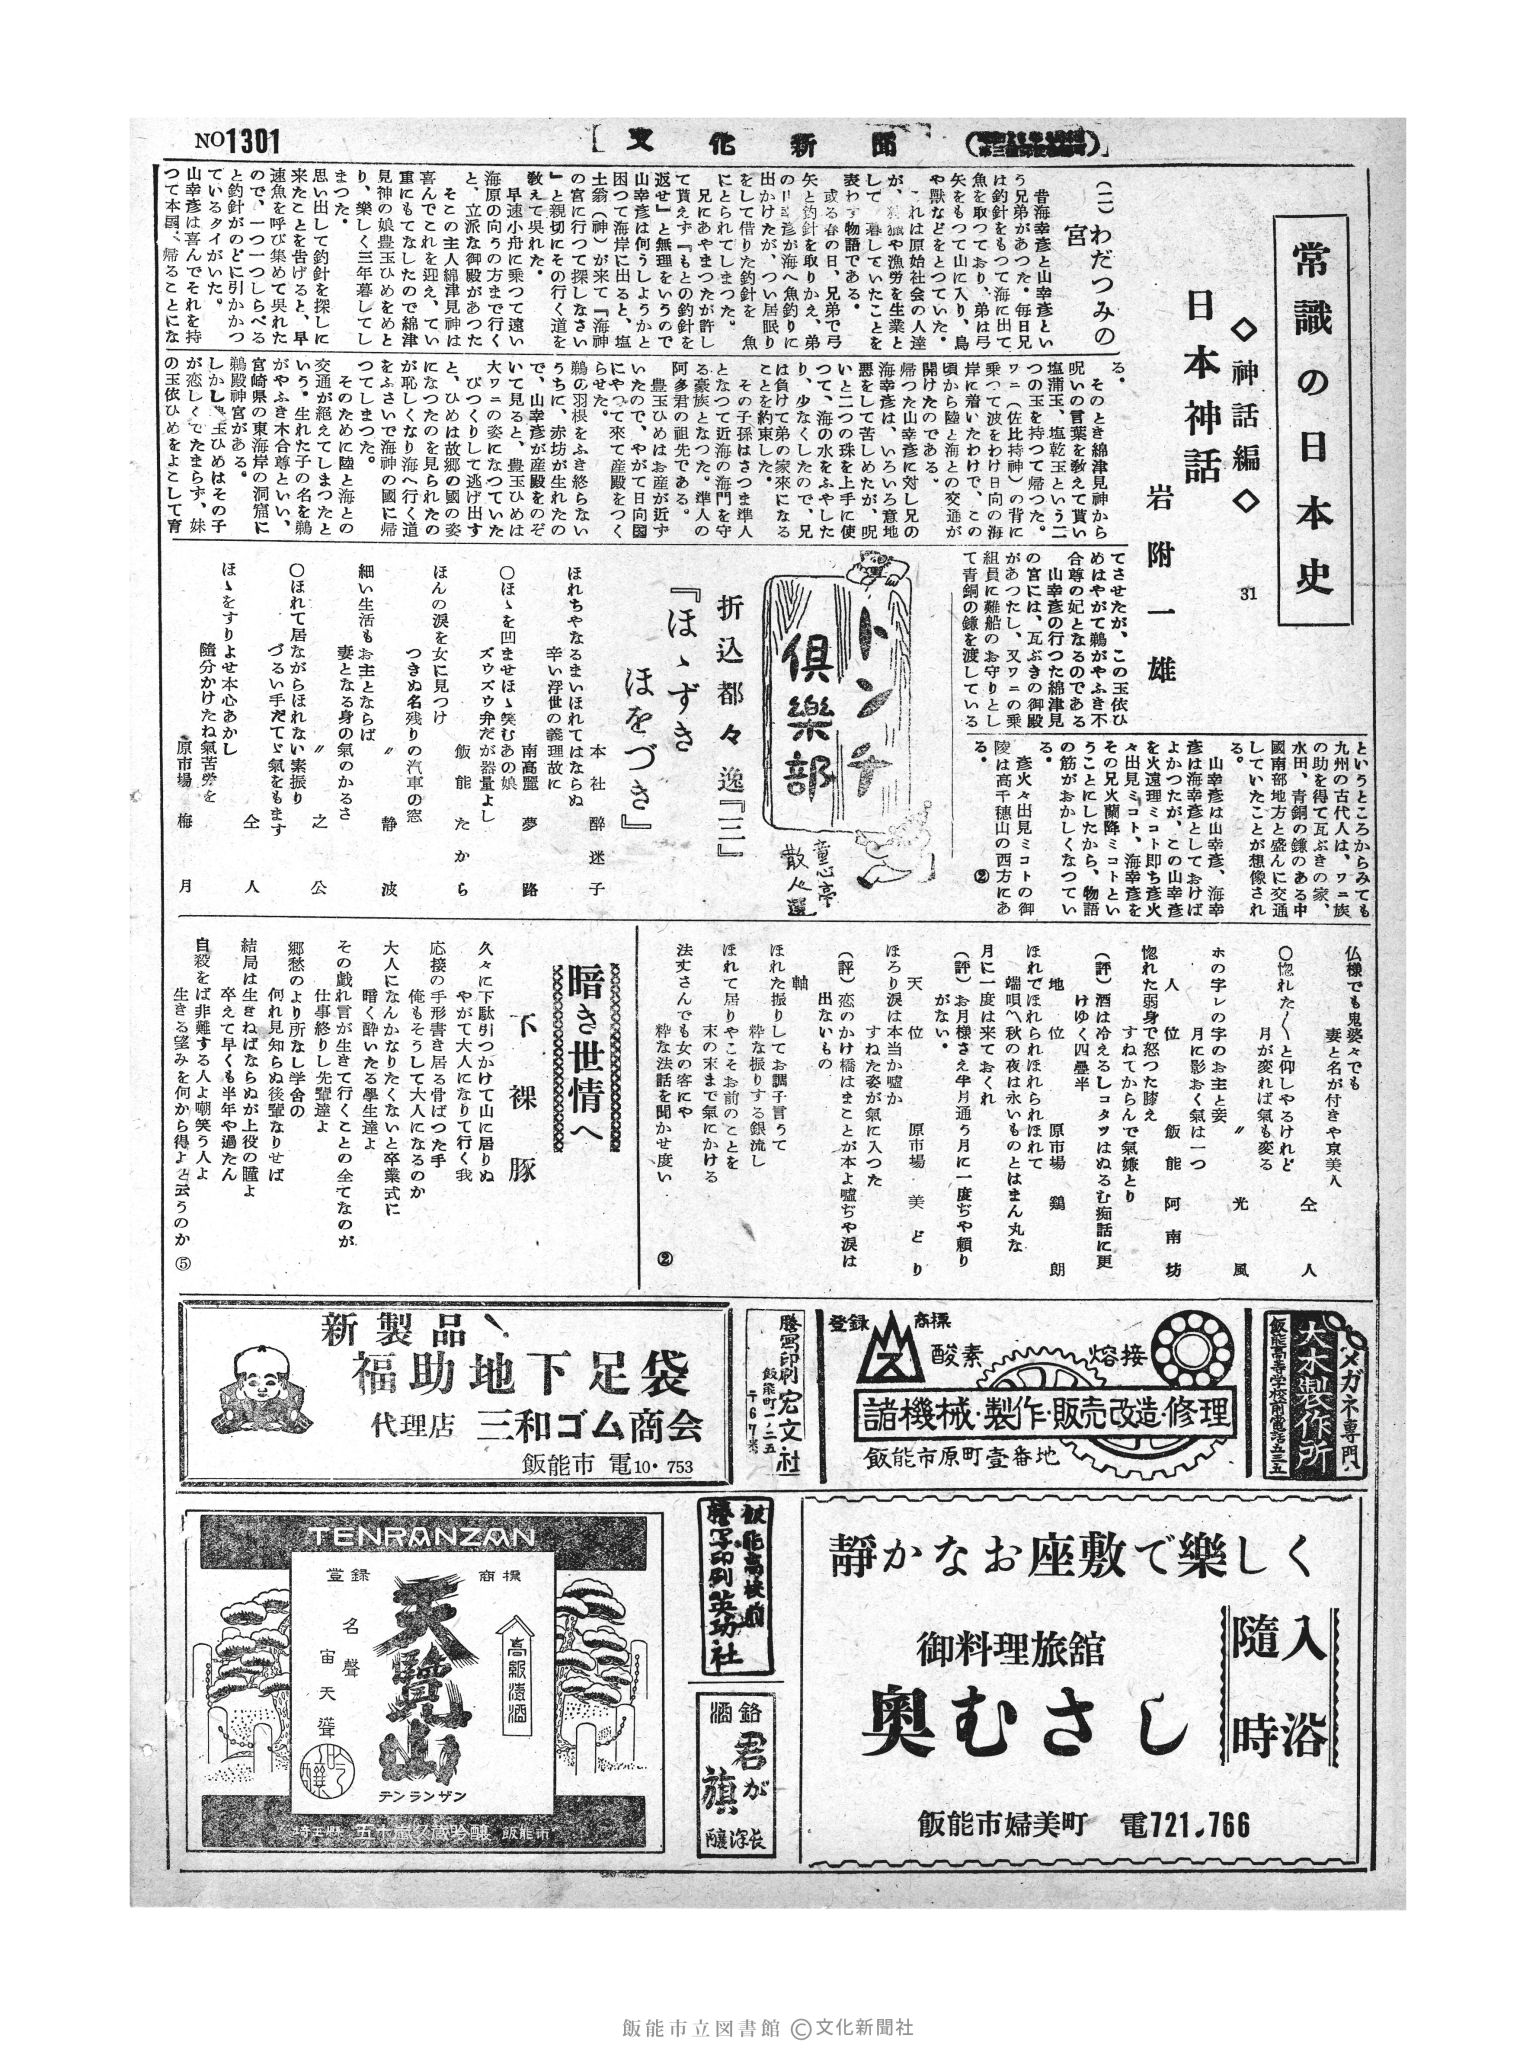 NO1301
文化新聞
常識の日本史
◇神話編◇
31
日本神話
岩附一雄
(二)わだつみの
宮
昔海幸彦と山幸彦とい
う兄弟があつた。毎日兄
は釣針をもつて海に出て
魚を取つており、弟は弓
矢をもつて山に入り、鳥
や獣などをとつていた。
これは原始社会の人達
が、狩猟や漁労を生業と
して、暮していたことを
表わす物語である。
或る春の日、兄弟で弓
矢と釣針を取りかえ、弟
の山幸彦が海へ魚釣りに
出かけたが、つい居眠り
をして借りた釣針を 魚
にとられてしまつた。
兄にあやまつたが許し
て貰えず『もとの釣針を
返せ』と無理をいうので
山幸彦は何うしようかと
困つて海岸に出ると、塩
土翁(神)が来て『海神
の宮に行つて探しなさい
』と親切にその行く道を
教えて呉れた。
早速小舟に乗つて遠い
海原の向うの方まで行く
と、立派な御殿があつた
そこの主人綿津見神は
喜んでこれを迎え、てい
重にもてなしたので綿津
見神の娘豊玉ひめをめと
り、樂しく三年暮してし
まつた。
思い出して釣針を探しに
来たことを告げると、早
速魚を呼び集めて呉れた
ので、一つ一つしらべる
と釣針がのどに引かかつ
ているタイがいた。
山幸彦は喜んでそれを持
つて本国へ帰ることにな
る。
そのとき綿津見神から
呪いの言葉を教えて貰い
塩満玉、塩乾玉という二
つの玉を持つて帰つた。
ワニ(佐比持神)の背に
乗つて波をわけ日向の海
岸に着いたわけで、この
頃から陸と海との交通が
開けたのである。
帰つた山幸彦に対し兄の
海幸彦は、いろいろ意地
悪をして苦しめたが、呪
いと二つの珠を上手に使
つて、海の水をふやした
り、少なくしたので、兄
は負けて弟の家來になる
ことを約束した。
その子孫はさつま隼人
となつて近海の海門を守
る豪族となつた。準人の
阿多君の祖先である。
豊玉ひめはお産が近ず
いたので、やがて日向國
にやつて來て産殿をつく
らせた。
鵜の羽根をふき終らない
うちに、赤坊が生れたの
で、山幸彦が産殿をのぞ
いて見ると、豊玉ひめは
大ワニの姿になつていた
びつくりして逃げ出す
と、ひめは故郷の國の姿
になつたのを見られたの
が恥しくなり海へ行く道
をふさいで海神の國に帰
つてしまつた。
そのために陸と海との
交通が絶えてしまつたと
いう。生れた子の名を鵜
がやふき木合尊といい、
宮崎県の東海岸の洞窟に
鵜殿神宮がある。
しかし豊玉ひめはその子
が恋しくてたまらず、妹
の玉依ひめをよこして育
てさせたが、この玉依ひ
めはやがて鵜がやふき不
合尊の妃となるのである
山幸彦の行つた綿津見
の宮には、瓦ぶきの御殿
があつたし、又ワニの乗
組員に難船のお守りとし
て青銅の鎌を渡している
というところからみても
九州の古代人は、ワニ族
の助を得て瓦ぶきの家、
水田、青銅の鎌のある中
國南部地方と盛んに交通
していたことが想像され
る。
山幸彦は山幸彦、海幸
彦は海幸彦としておけば
よかつたが、この山幸彦
を火遠理ミコト即ち彦火
々出見ミコト、海幸彦を
その兄火蘭降ミコトとい
うことにしたから、物語
の筋がおかしくなつてい
る。
彦火々出見ミコトの御
陵は高千穂山の西方にあ
る。 ②
トンチ
倶樂部
童心亭
散人選
折込都々逸『三』
『ほゝずき
ほをづき』
本社 醉迷子
ほれちやなるまいほれてはならぬ
辛い浮世の義理故に
南高麗 夢路
○ほゝを凹ませほゝ笑むあの娘
ズウズウ弁だが器量よし
飯能 たから
ほんの涙を女に見つけ
つきぬ名残りの汽車の窓
〃 静波
細い生活もお主とならば
妻となる身の氣のかるさ
〃 之公
○ほれて居ながらほれない素振り
づるい手だてゞ氣をもます
仝人
ほゝをすりよせ本心あかし
隨分かけたね氣苦労を
原市場 梅月
仏様でも鬼婆々でも
妻と名が付きや京美人
仝人
○惚れた〳〵と仰しやるけれど
月が変れば氣も変る
〃 光風
ホの字レの字のお主と妾
月に影おく氣は一つ
人位 飯能 阿南坊
惚れた弱身で怒つた膝え
すねてからんで氣嫌とり
(評)酒は冷えるしコタツはぬるむ痴話に更
けゆく四疊半
地位 原市場 鶏朗
ほれてほれられほれられほれて
端唄へ秋の夜は永いものとはまん丸な
月に一度は来ておくれ
(評)お月様さえ半月通う月に一度ぢや頼り
がない。
天位 原市場 美どり
ほろり涙は本当か嘘か
すねた姿が氣に入つた
(評)恋のかけ橋はまことが本よ嘘ぢや涙は
出ないもの
軸
ほれた振りしてお調子言うて
粋な振りする銀流し
ほれて居りやこそお前のことを
末の末まで氣にかける
法丈さんでも女の客にや
粋な法話を聞かせ度い
②
暗き世情へ
不裸豚
久々に下駄引つかけて山に居りぬ
やがて大人になりて行く我
応接の手形書き居る骨ばつた手
俺もそうして大人になるのか
大人になんかなりたくないと卒業式に
暗く酔いたる學生達よ
その戯れ言が生きて行くことの全てなのが
仕事終りし先輩達よ
郷愁のより所なし学舎の
何れ見知らぬ後輩なりせば
結局は生きねばならぬが上役の瞳よ
卒えて早くも半年や過たん
自殺をば非難する人よ嘲笑う人よ
生きる望みを何から得よと云うのか
⑤
メガネ専門
大木製作所
飯能高等学校前電話五三五
登録 商標
ス
酸素 熔接
諸機械・製作・販売改造・修理
飯能市原町壹番地
謄寫印刷 宏文社
飯能町一ノ二五
新製品、
福助地下足袋
代理店 三和ゴム商会
飯能市 電10・753
靜かなお座敷で樂しく
御料理旅舘
奥むさし
入浴
隨時
飯能市婦美町 電721.766
飯能高校前
謄写印刷英功社
銘酒
君が旗
TENRANZAN
登録 商標
天覽山
テンランザン
高級清酒
名聲
宙天
埼玉県 五十嵐久蔵吟醸 飯能市
飯能市立図書館 ©文化新聞社